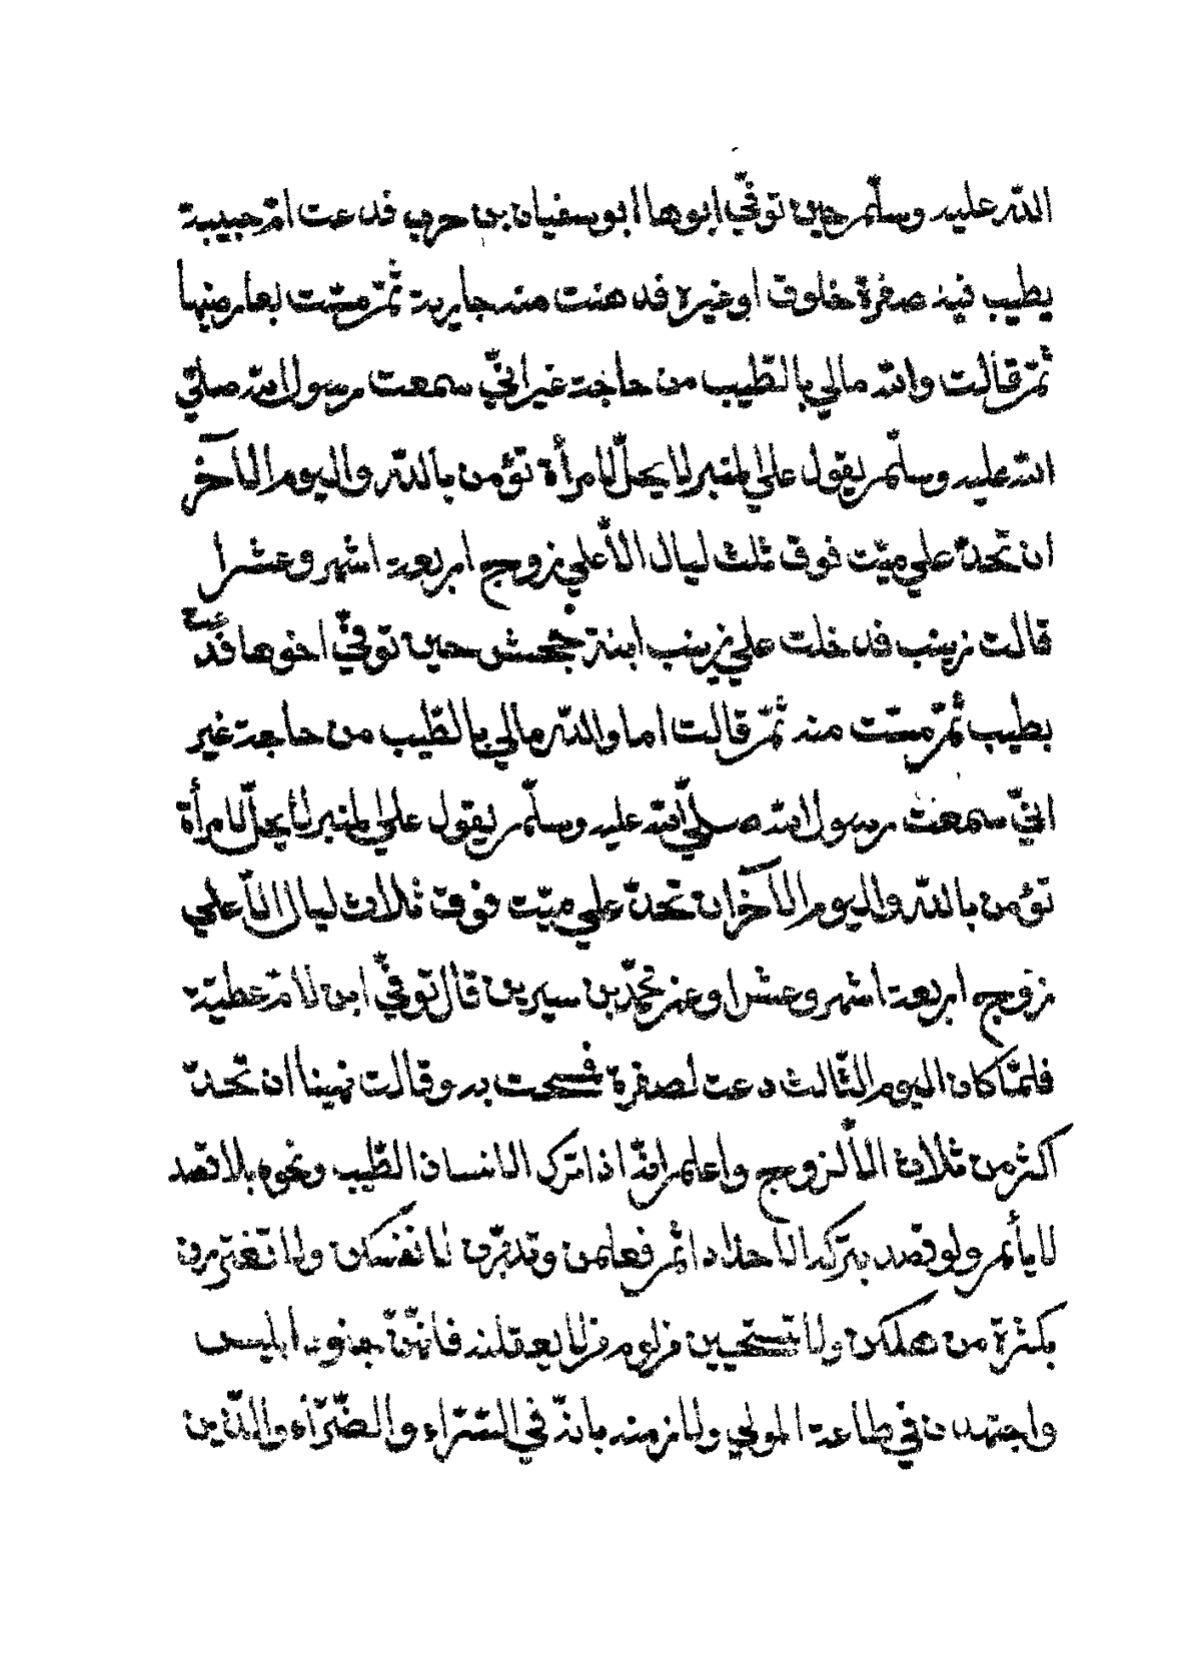 الله عليه وسلّم حين توفّي ابوها ابو سفيان بن حرب فدعت امّ حبيبة
بطيب فيه صفرة خلوق او غيره فدهنت منه جارية ثمّ مسّت بعارضيها
ثمّ قالت والله مالي بالطّيب من حاجة غير انّي سمعت رسول الله صلّي
الله عليه وسلّم يقول علي المنبر لا يحلّ لامرأة تؤمن بالله واليوم الآخر
ان تحدّ علي ميّت فوق ثلث ليال الّا علي زوج اربعة اشهر وعشرا
قالت زينب فدخلت علي زينب ابنة جحش حين توفّي اخوها فدعت
بطيب ثمّ مسّت منه ثمّ قالت اما والله مالي بالطّيب من حاجة غير
انّي سمعت رسول الله صلّي الله عليه وسلّم يقول علي المنبر لا يحلّ لامرأة
تؤمن بالله واليوم الآخر ان تحدّ علي ميّت فوق ثلاث ليال الّا علي
زوج اربعة اشهر وعشرا وعن محمّد بن سيرين قال توفّي ابن لامّ عطيّة
فلمّا كان اليوم الثّالث دعت لصفرة فمسحت به وقالت نهينا ان تحدّ
اكثر من ثلاث الّا لزوج واعلم انّه اذا ترك الانسان الطّيب ونحوه بلا قصد
لا يأثم ولو قصد بتركه الاحداد اثم فعلمن وتدبّرن لانفسكن ولا تغتررن
بكثرة من هلكن ولا تستحيين من لوم من لا يعقلنه فانّهنّ جنود ابليس
واجتهدن في طاعة المولي ولازمنه بانّه في السّرّاء والضّرّاء والّذين